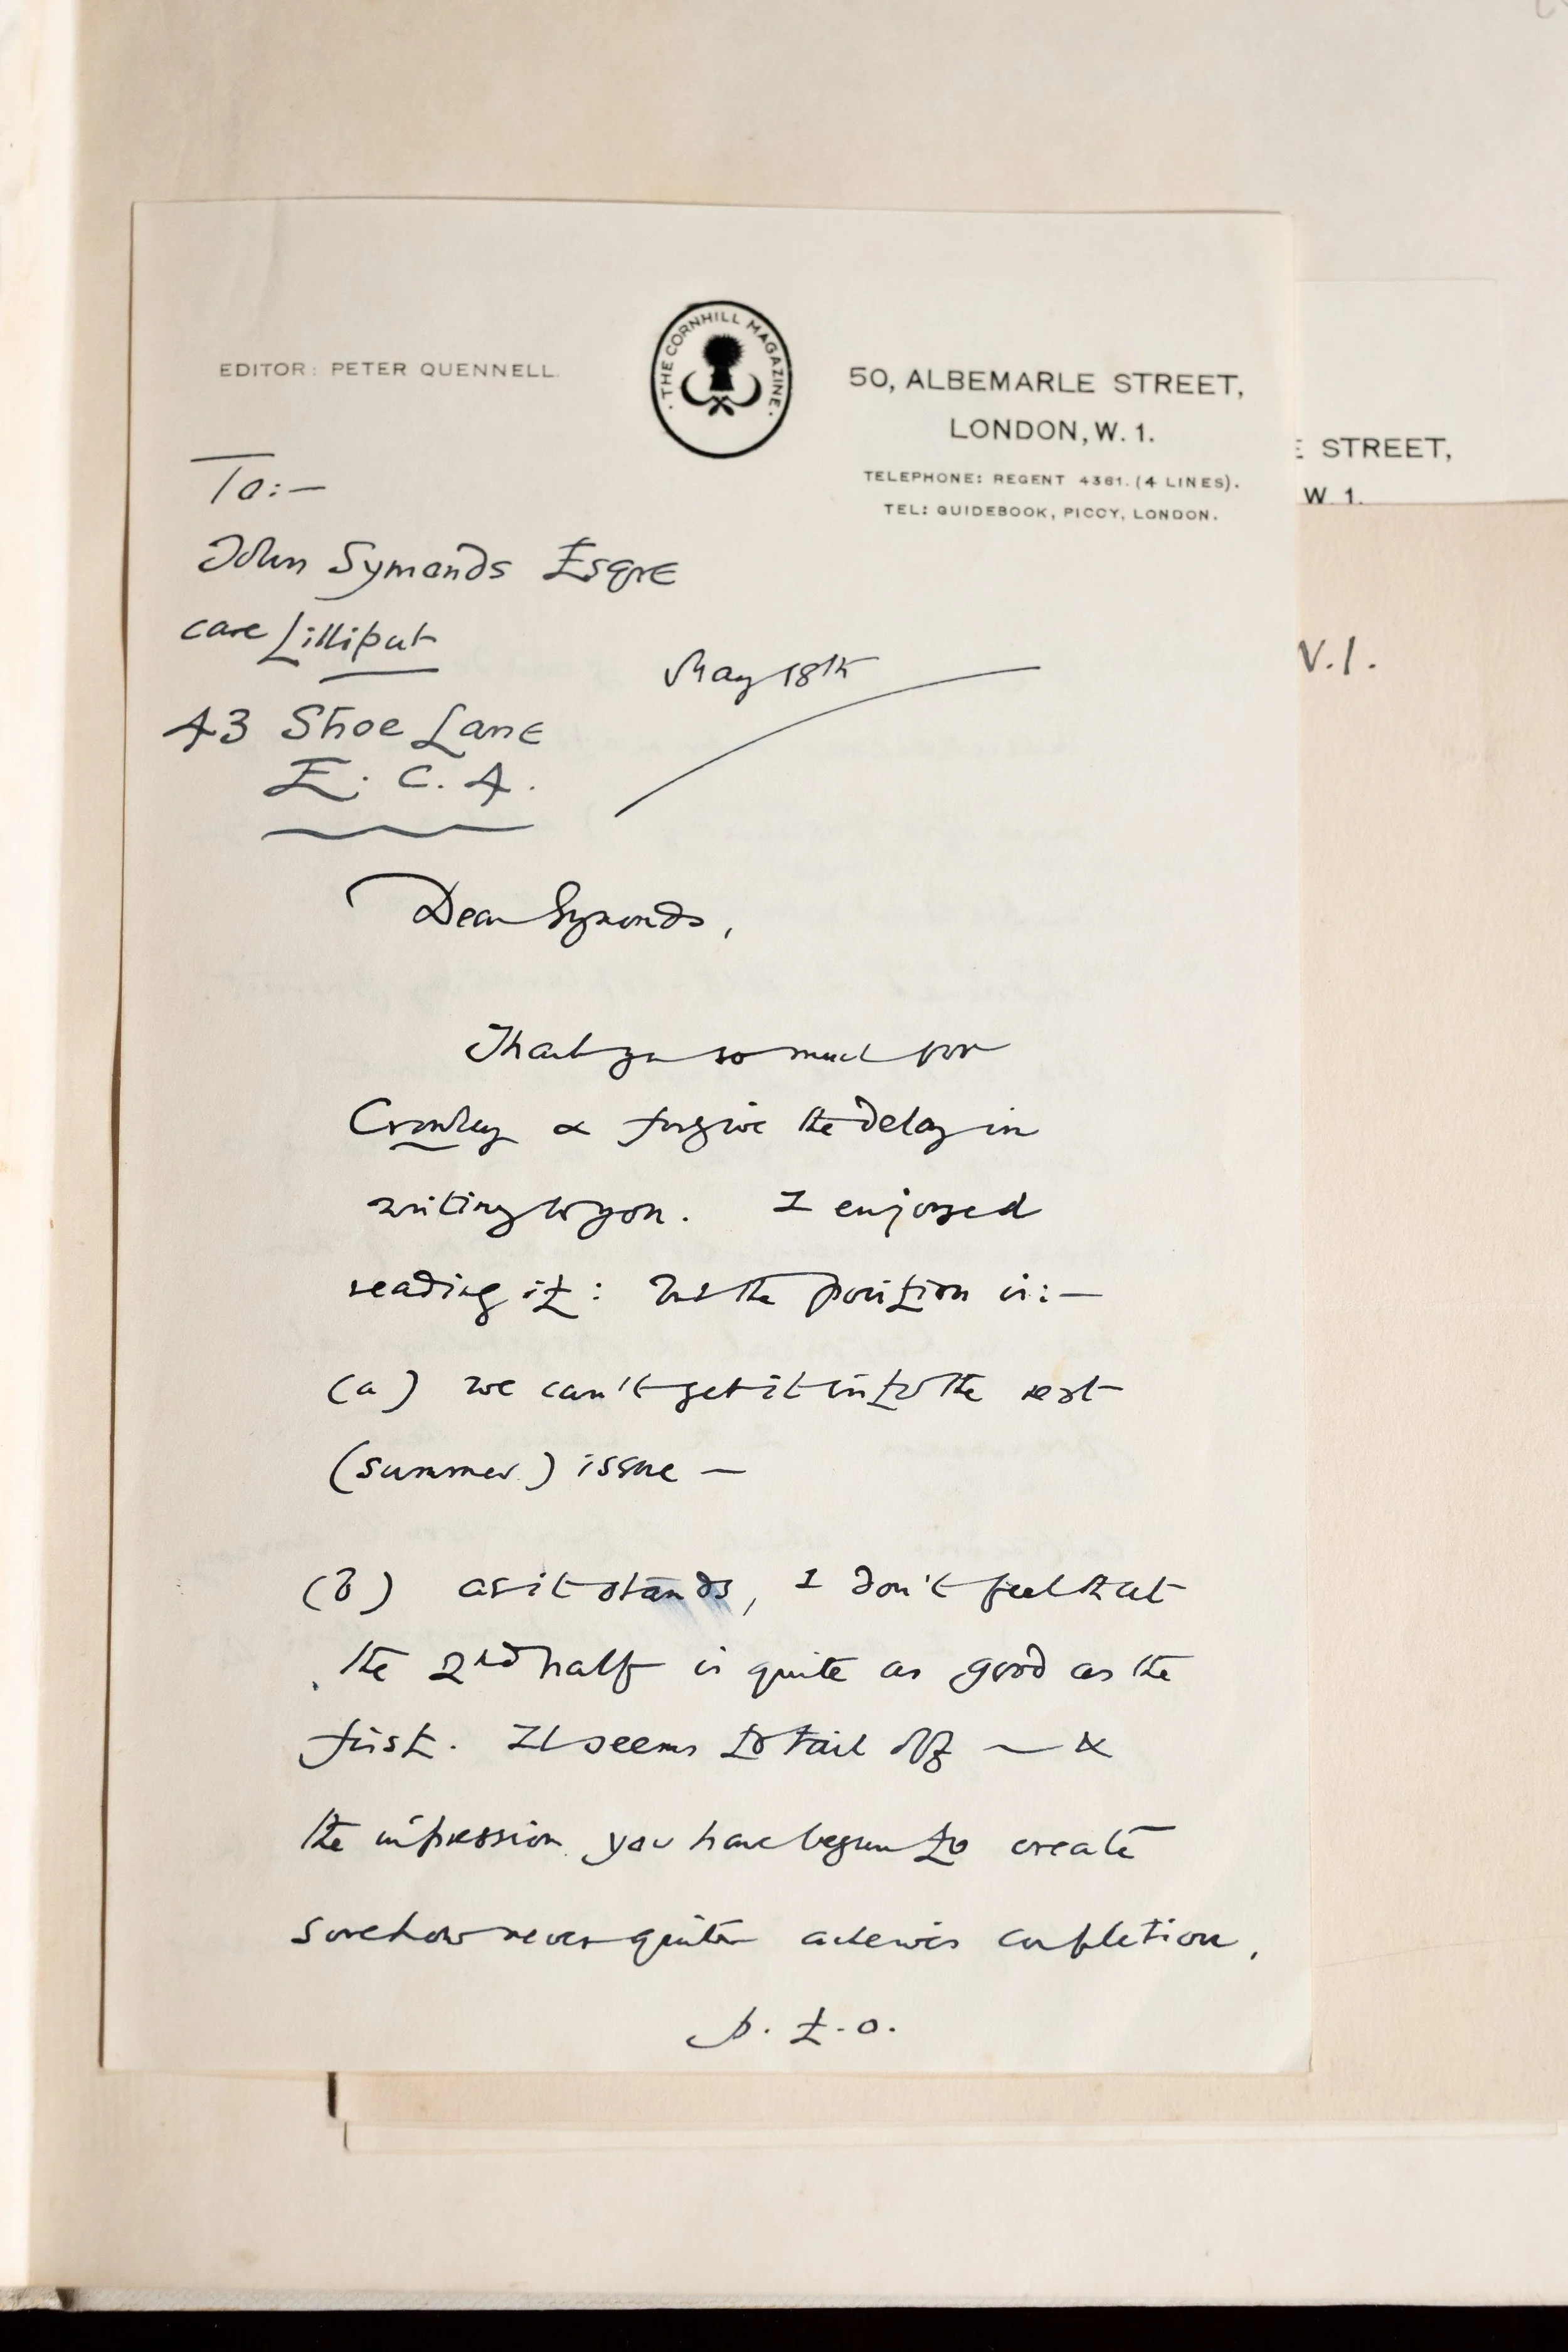 EDITOR: PETER QUENNELL.
· THE CORNHILL MAGAZINE ·
50, ALBEMARLE STREET,
LONDON, W. 1.
TELEPHONE: REGENT 4361. (4 LINES).
TEL: GUIDEBOOK, PICCY, LONDON.
E STREET,
W. 1.
W.1.
To:—
John Symonds Esqre
care Lilliput
43 Shoe Lane
E. C. 4.
May 18th
Dear Symonds,
Thank you so much for
Crowley & forgive the delay in
writing to you. I enjoyed
reading it: but the position is:—
(a) we can't get it into the next
(summer) issue —
(b) as it stands, I don't feel that
the 2nd half is quite as good as the
first. It seems to tail off — &
the impression you have begun to create
somehow never quite achieves completion.
p. t. o.